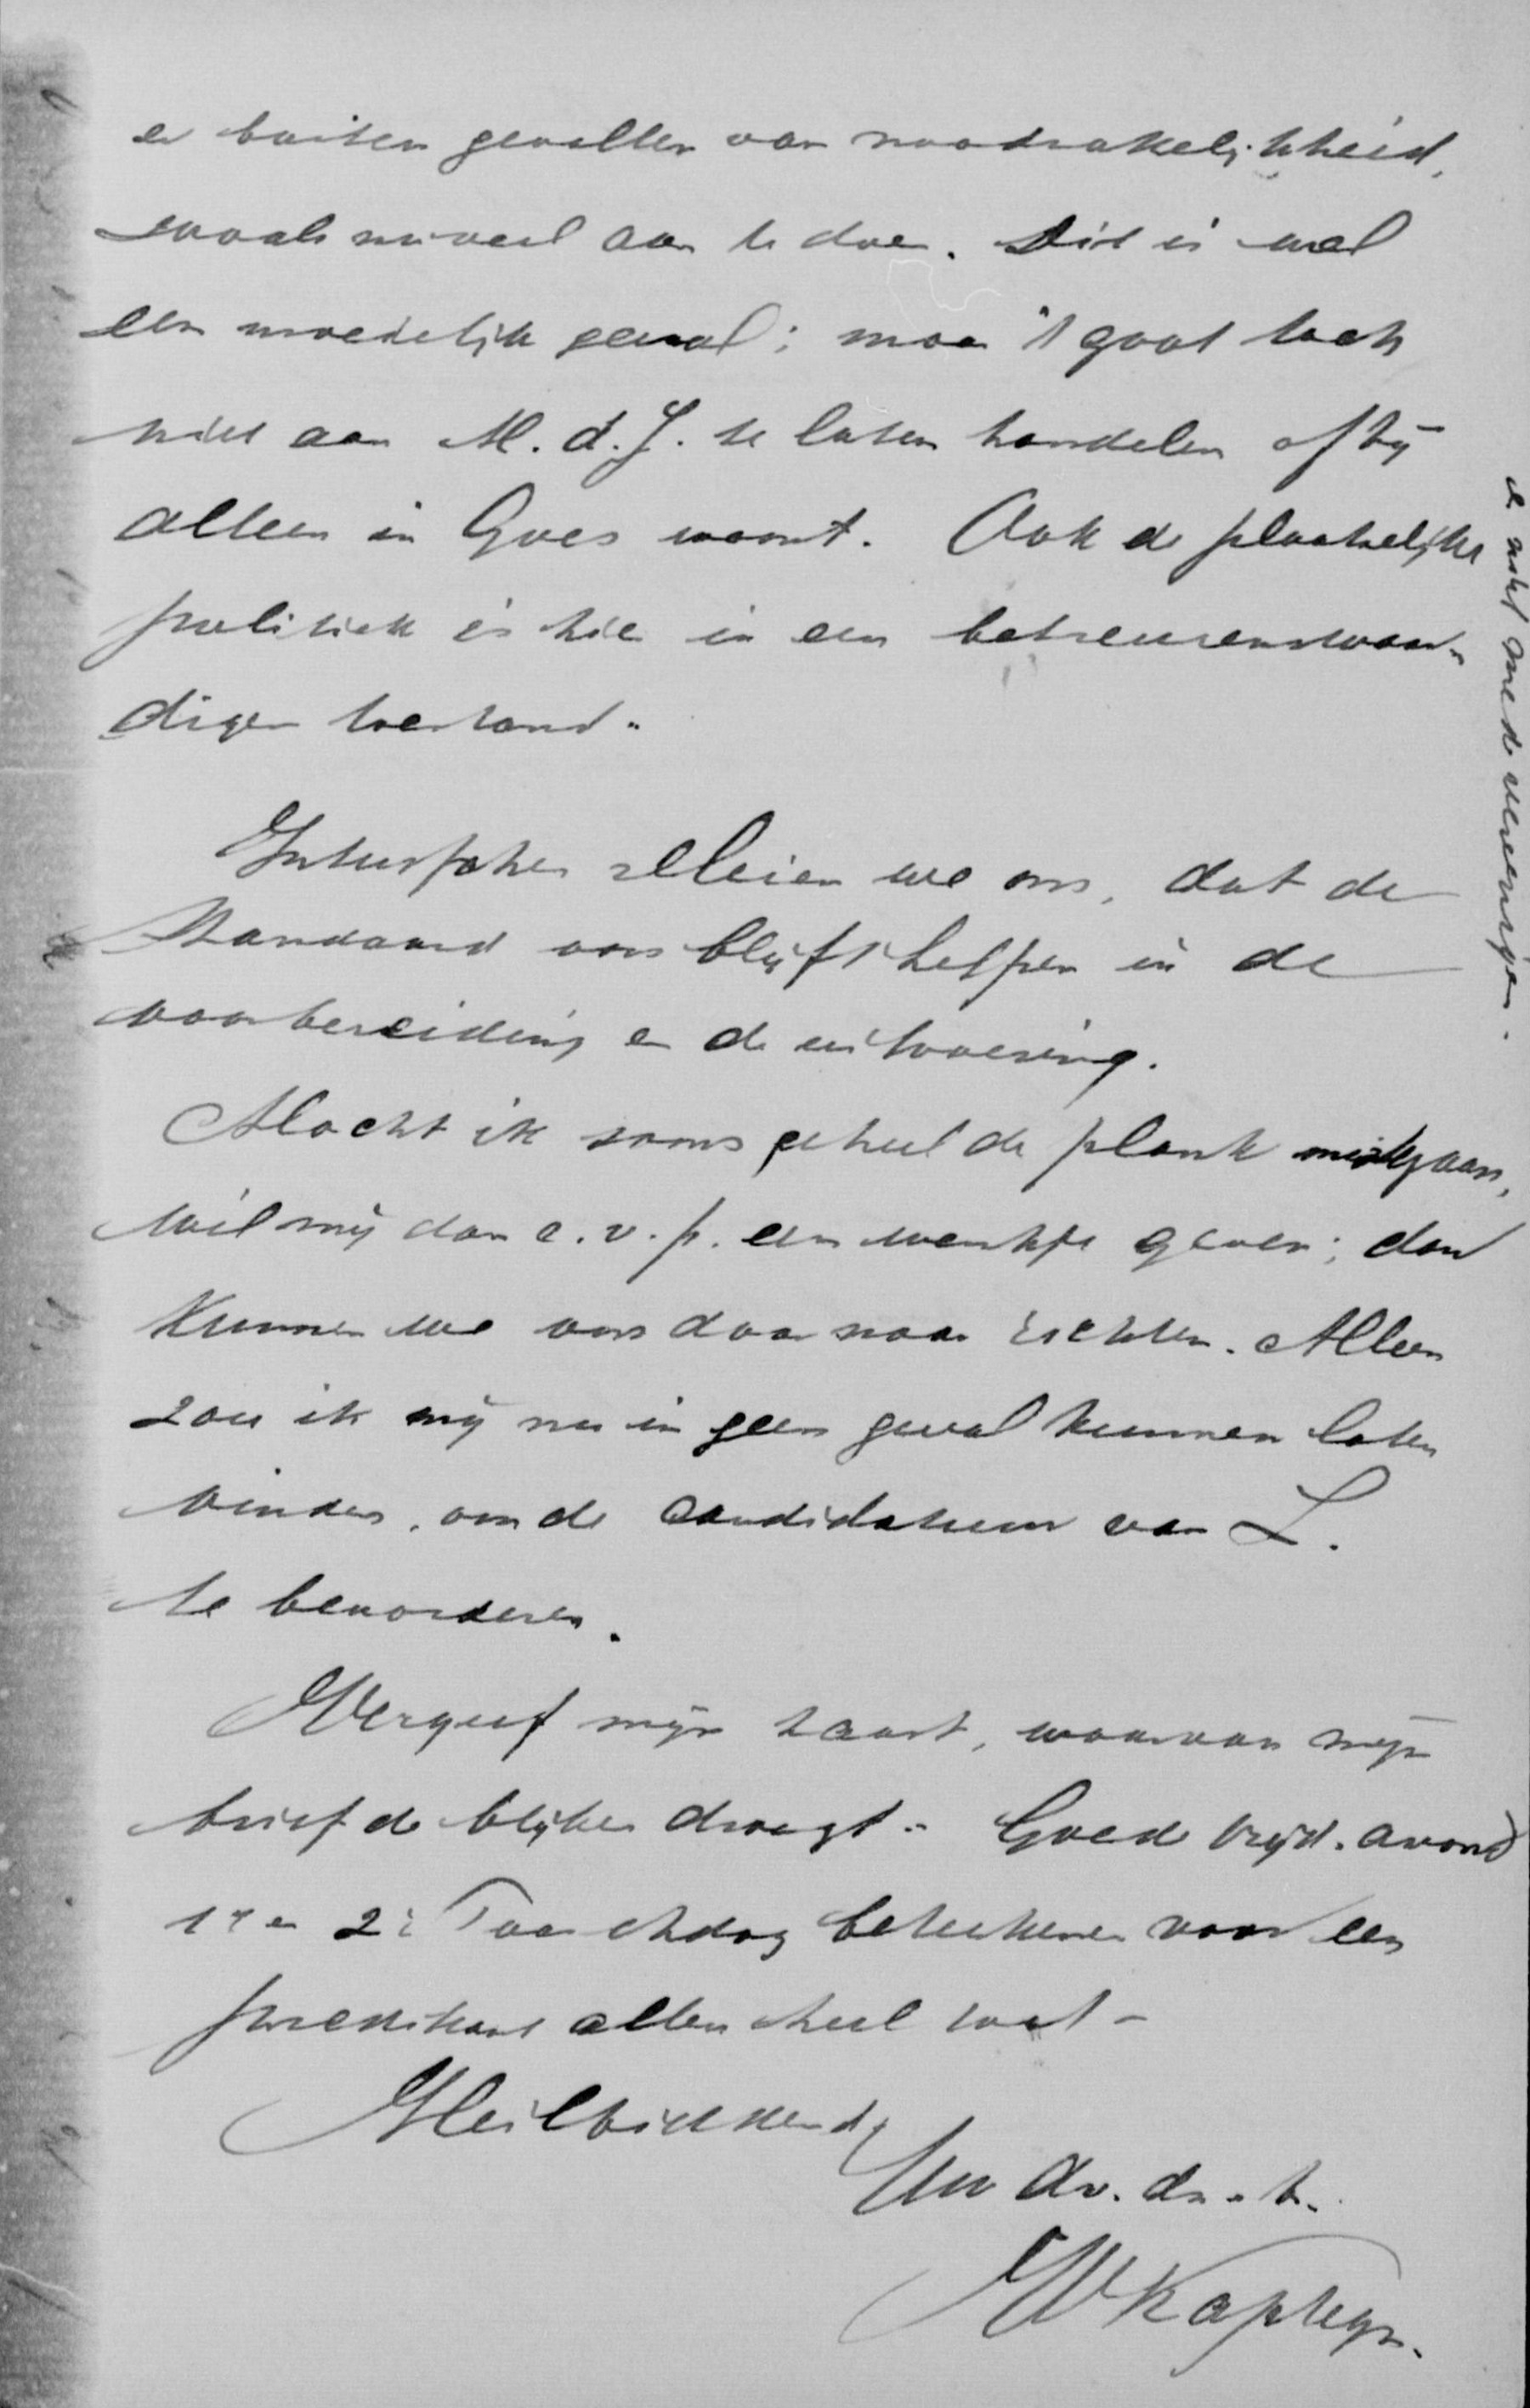 er buiten gevallen van noodzakelijkheid,
zooals nu veel aan te doen. Dit is wel
een moeielijk geval; maar 't gaat toch
niet aan M. d. J. te laten handelen of hij
alleen in Goes woont. Ook de plaatselijke
politiek is hier in een betreurenswaar-
digen toestand.
Intusschen vleien we ons, dat de
Standaard ons blijft helpen in de
voorbereiding en de uitvoering.
Mocht ik soms geheel de plank misgaan,
wil mij dan e. v. p. een wenkje geven; dan
kunnen we ons daarnaar richten. Alleen
zou ik mij nu in geen geval kunnen laten
vinden, om de candidatuur van L.
te bevorderen.
Vergeef mijn haast, waarvan mijn
brief de blijken draagt. Goede Vrijd. avond
1e en 2e Paaschdag beteekenen voor een
predikant allen heel wat -
Heilbiddend,
Uw dv. dr. en br.
W Kapteyn.
mede vereenigen.